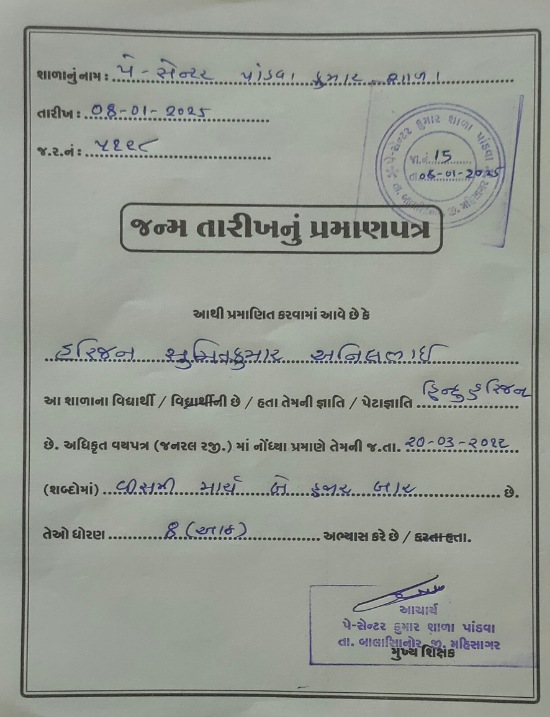 શાળાનું નામ : પે - સેન્ટર પાંડવા કુમાર શાળા
તારીખ : 08-01-2025
જ.ર.નં : ૫૨૧૮
પે-સેન્ટર કુમાર શાળા પાંડવા
જા.નં. 15
તા 08-01-2025
તા. બાલાસિનોર જી. મહિસાગર
જન્મ તારીખનું પ્રમાણપત્ર
આથી પ્રમાણિત કરવામાં આવે છે કે
હરિજન સુમિતકુમાર અનિલભાઈ
આ શાળાના વિદ્યાર્થી / વિદ્યાર્થીની છે / હતા તેમની જ્ઞાતિ / પેટાજ્ઞાતિ હિન્દુ હરિજન
છે. અધિકૃત વયપત્ર (જનરલ રજી.) માં નોંધ્યા પ્રમાણે તેમની જ.તા. ૨૦-૦૩-૨૦૧૨
(શબ્દોમાં) વીસમી માર્ચ બે હજાર બાર છે.
તેઓ ધોરણ 8 (આઠ) અભ્યાસ કરે છે / કરતા હતા.
આચાર્ય
પે-સેન્ટર કુમાર શાળા પાંડવા
તા. બાલાસિનોર જી. મહિસાગર
મુખ્ય શિક્ષક